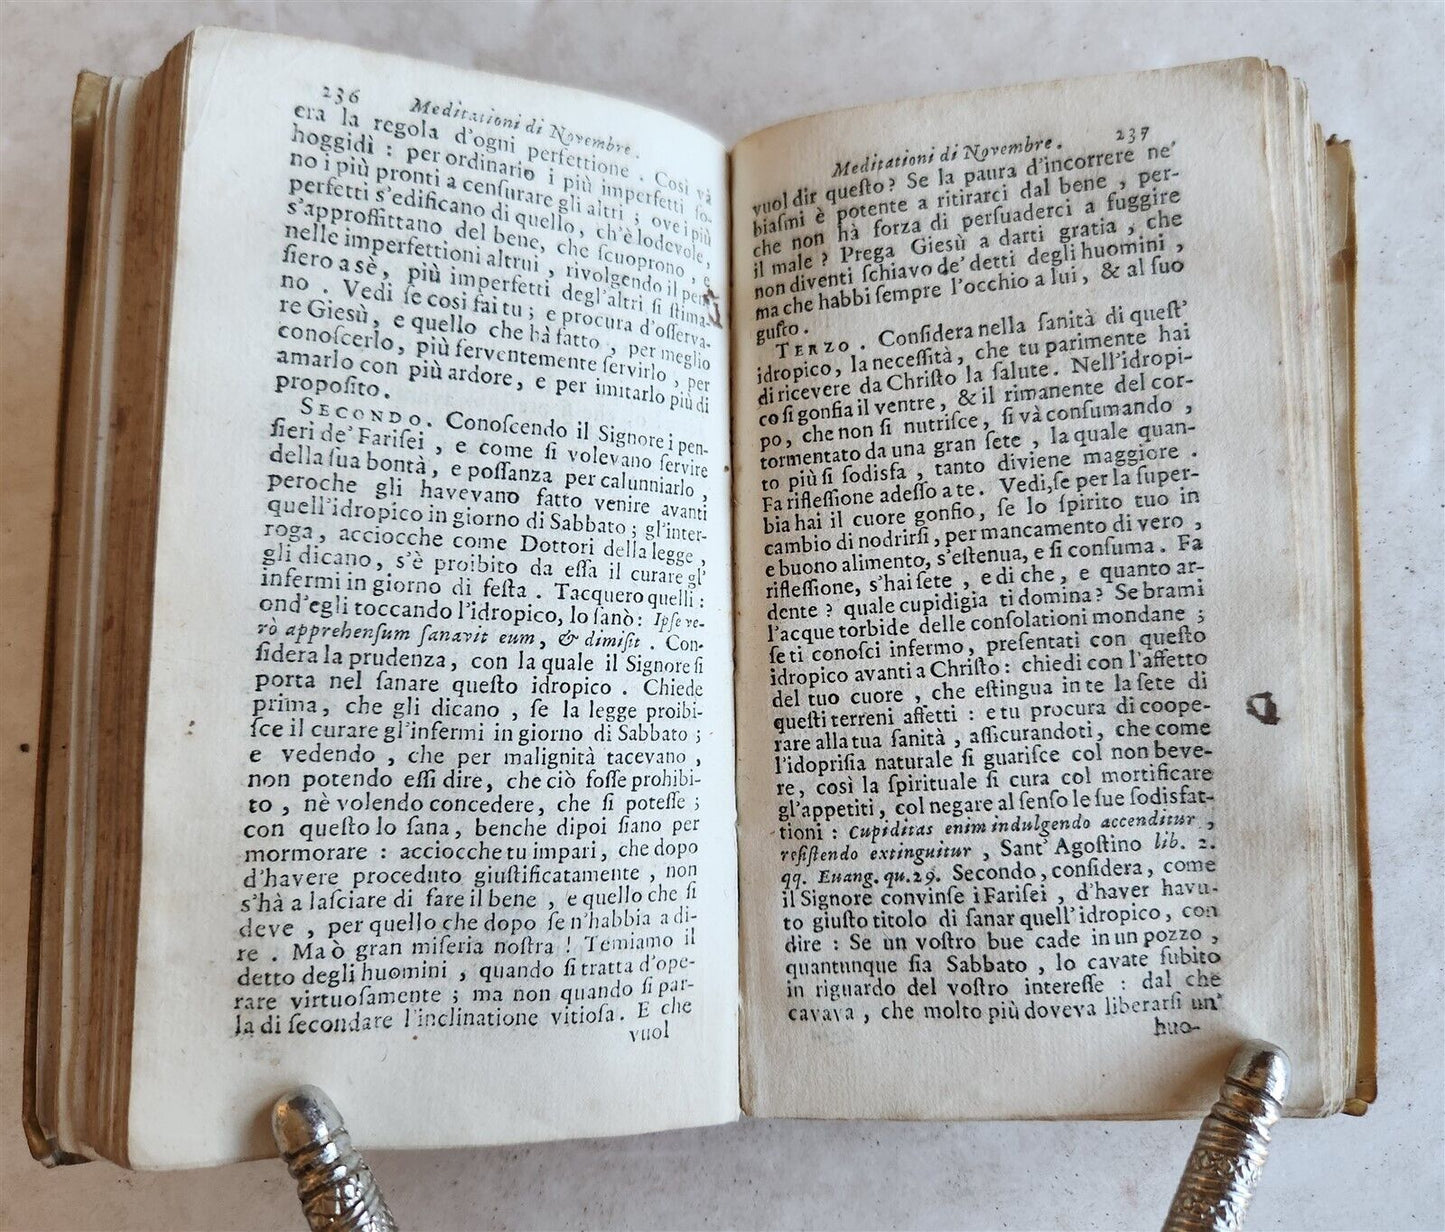 236 Meditationi di Novembre.
era la regola d'ogni perfettione. Così và
hoggidì: per ordinario i più imperfetti ſo-
no i più pronti a cenſurare gli altri; ove i più
perfetti s'edificano di quello, ch'è lodevole,
s'approffittano del bene, che ſcuoprono, e
nelle imperfettioni altrui, rivolgendo il pen-
ſiero a sè, più imperfetti degl'altri ſi ſtima-
no. Vedi ſe così fai tu; e procura d'oſſerva-
re Giesù, e quello che hà fatto, per meglio
conoſcerlo, più ferventemente ſervirlo, per
amarlo con più ardore, e per imitarlo più di
propoſito.
SECONDO. Conoſcendo il Signore i pen-
ſieri de' Fariſei, e come ſi volevano ſervire
della ſua bontà, e poſſanza per calunniarlo,
peroche gli havevano fatto venire avanti
quell'idropico in giorno di Sabbato; gl'inter-
roga, acciocche come Dottori della legge,
gli dicano, s'è proibito da eſſa il curare gl'
infermi in giorno di feſta. Tacquero quelli:
ond'egli toccando l'idropico, lo ſanò: Ipſe ve-
rò apprehenſum ſanavit eum, & dimiſit. Con-
ſidera la prudenza, con la quale il Signore ſi
porta nel ſanare queſto idropico. Chiede
prima, che gli dicano, ſe la legge proibi-
ſce il curare gl'infermi in giorno di Sabbato;
e vedendo, che per malignità tacevano,
non potendo eſſi dire, che ciò foſſe prohibi-
to, nè volendo concedere, che ſi poteſſe;
con queſto lo ſana, benche dipoi ſiano per
mormorare: acciocche tu impari, che dopo
d'havere proceduto giuſtificatamente, non
s'hà a laſciare di fare il bene, e quello che ſi
deve, per quello che dopo ſe n'habbia a di-
re. Ma ò gran miſeria noſtra! Temiamo il
detto degli huomini, quando ſi tratta d'ope-
rare virtuoſamente; ma non quando ſi par-
la di ſecondare l'inclinatione vitioſa. E che
vuol
Meditationi di Novembre. 237
vuol dir queſto? Se la paura d'incorrere ne'
biaſmi è potente a ritirarci dal bene, per-
che non hà forza di perſuaderci a fuggire
il male? Prega Giesù a darti gratia, che
non diventi ſchiavo de' detti degli huomini,
ma che habbi ſempre l'occhio a lui, & al ſuo
guſto.
TERZO. Conſidera nella ſanità di queſt'
idropico, la neceſſità, che tu parimente hai
di ricevere da Chriſto la ſalute. Nell'idropi-
co ſi gonfia il ventre, & il rimanente del cor-
po, che non ſi nutriſce, ſi và conſumando,
tormentato da una gran ſete, la quale quan-
to più ſi ſodisfa, tanto diviene maggiore.
Fa rifleſſione adeſſo a te. Vedi, ſe per la ſuper-
bia hai il cuore gonfio, ſe lo ſpirito tuo in
cambio di nodrirſi, per mancamento di vero,
e buono alimento, s'eſtenua, e ſi conſuma. Fa
rifleſſione, s'hai ſete, e di che, e quanto ar-
dente? quale cupidigia ti domina? Se brami
l'acque torbide delle conſolationi mondane;
ſe ti conoſci infermo, preſentati con queſto
idropico avanti a Chriſto: chiedi con l'affetto
del tuo cuore, che eſtingua in te la ſete di
queſti terreni affetti: e tu procura di coope-
rare alla tua ſanità, aſſicurandoti, che come
l'idopriſia naturale ſi guariſce col non beve-
re, così la ſpirituale ſi cura col mortificare
gl'appetiti, col negare al ſenſo le ſue ſodisfat-
tioni: Cupiditas enim indulgendo accenditur,
reſiſtendo extinguitur, Sant' Agoſtino lib. 2.
qq. Euang. qu. 29. Secondo, conſidera, come
il Signore convinſe i Fariſei, d'haver havu-
to giuſto titolo di ſanar quell'idropico, con
dire: Se un voſtro bue cade in un pozzo,
quantunque ſia Sabbato, lo cavate ſubito
in riguardo del voſtro intereſſe: dal che
cavava, che molto più doveva liberarſi un'
huo-